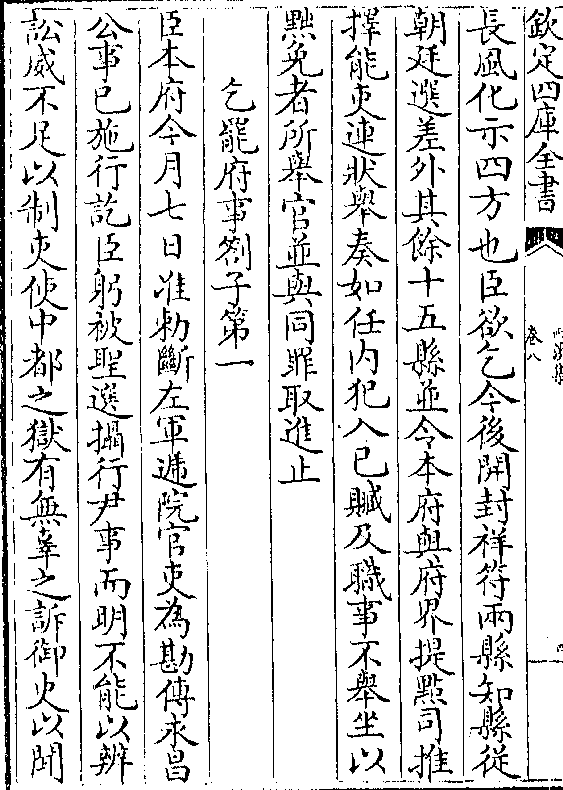 欽定四庫全書
卷八
長風化示四方也臣欲乞今後開封祥符兩縣知縣從
朝廷選差外其餘十五縣並令本府與府界提㸃司推
擇能吏連狀舉奏如任内犯入已贓及職事不舉坐以
黜免者所舉官並與同罪取進止
乞罷府事劄子第一
臣本府今月七日准勅斷左軍遞院官吏為勘傳永昌
公事已施行訖臣躬被聖選攝行尹事而明不能以辨
訟威不足以制吏使中都之獄有無辜之訴御史以聞